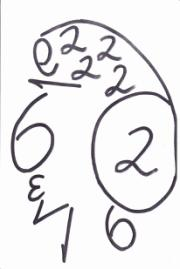 e 2 2
2 2
6 2
ε
6